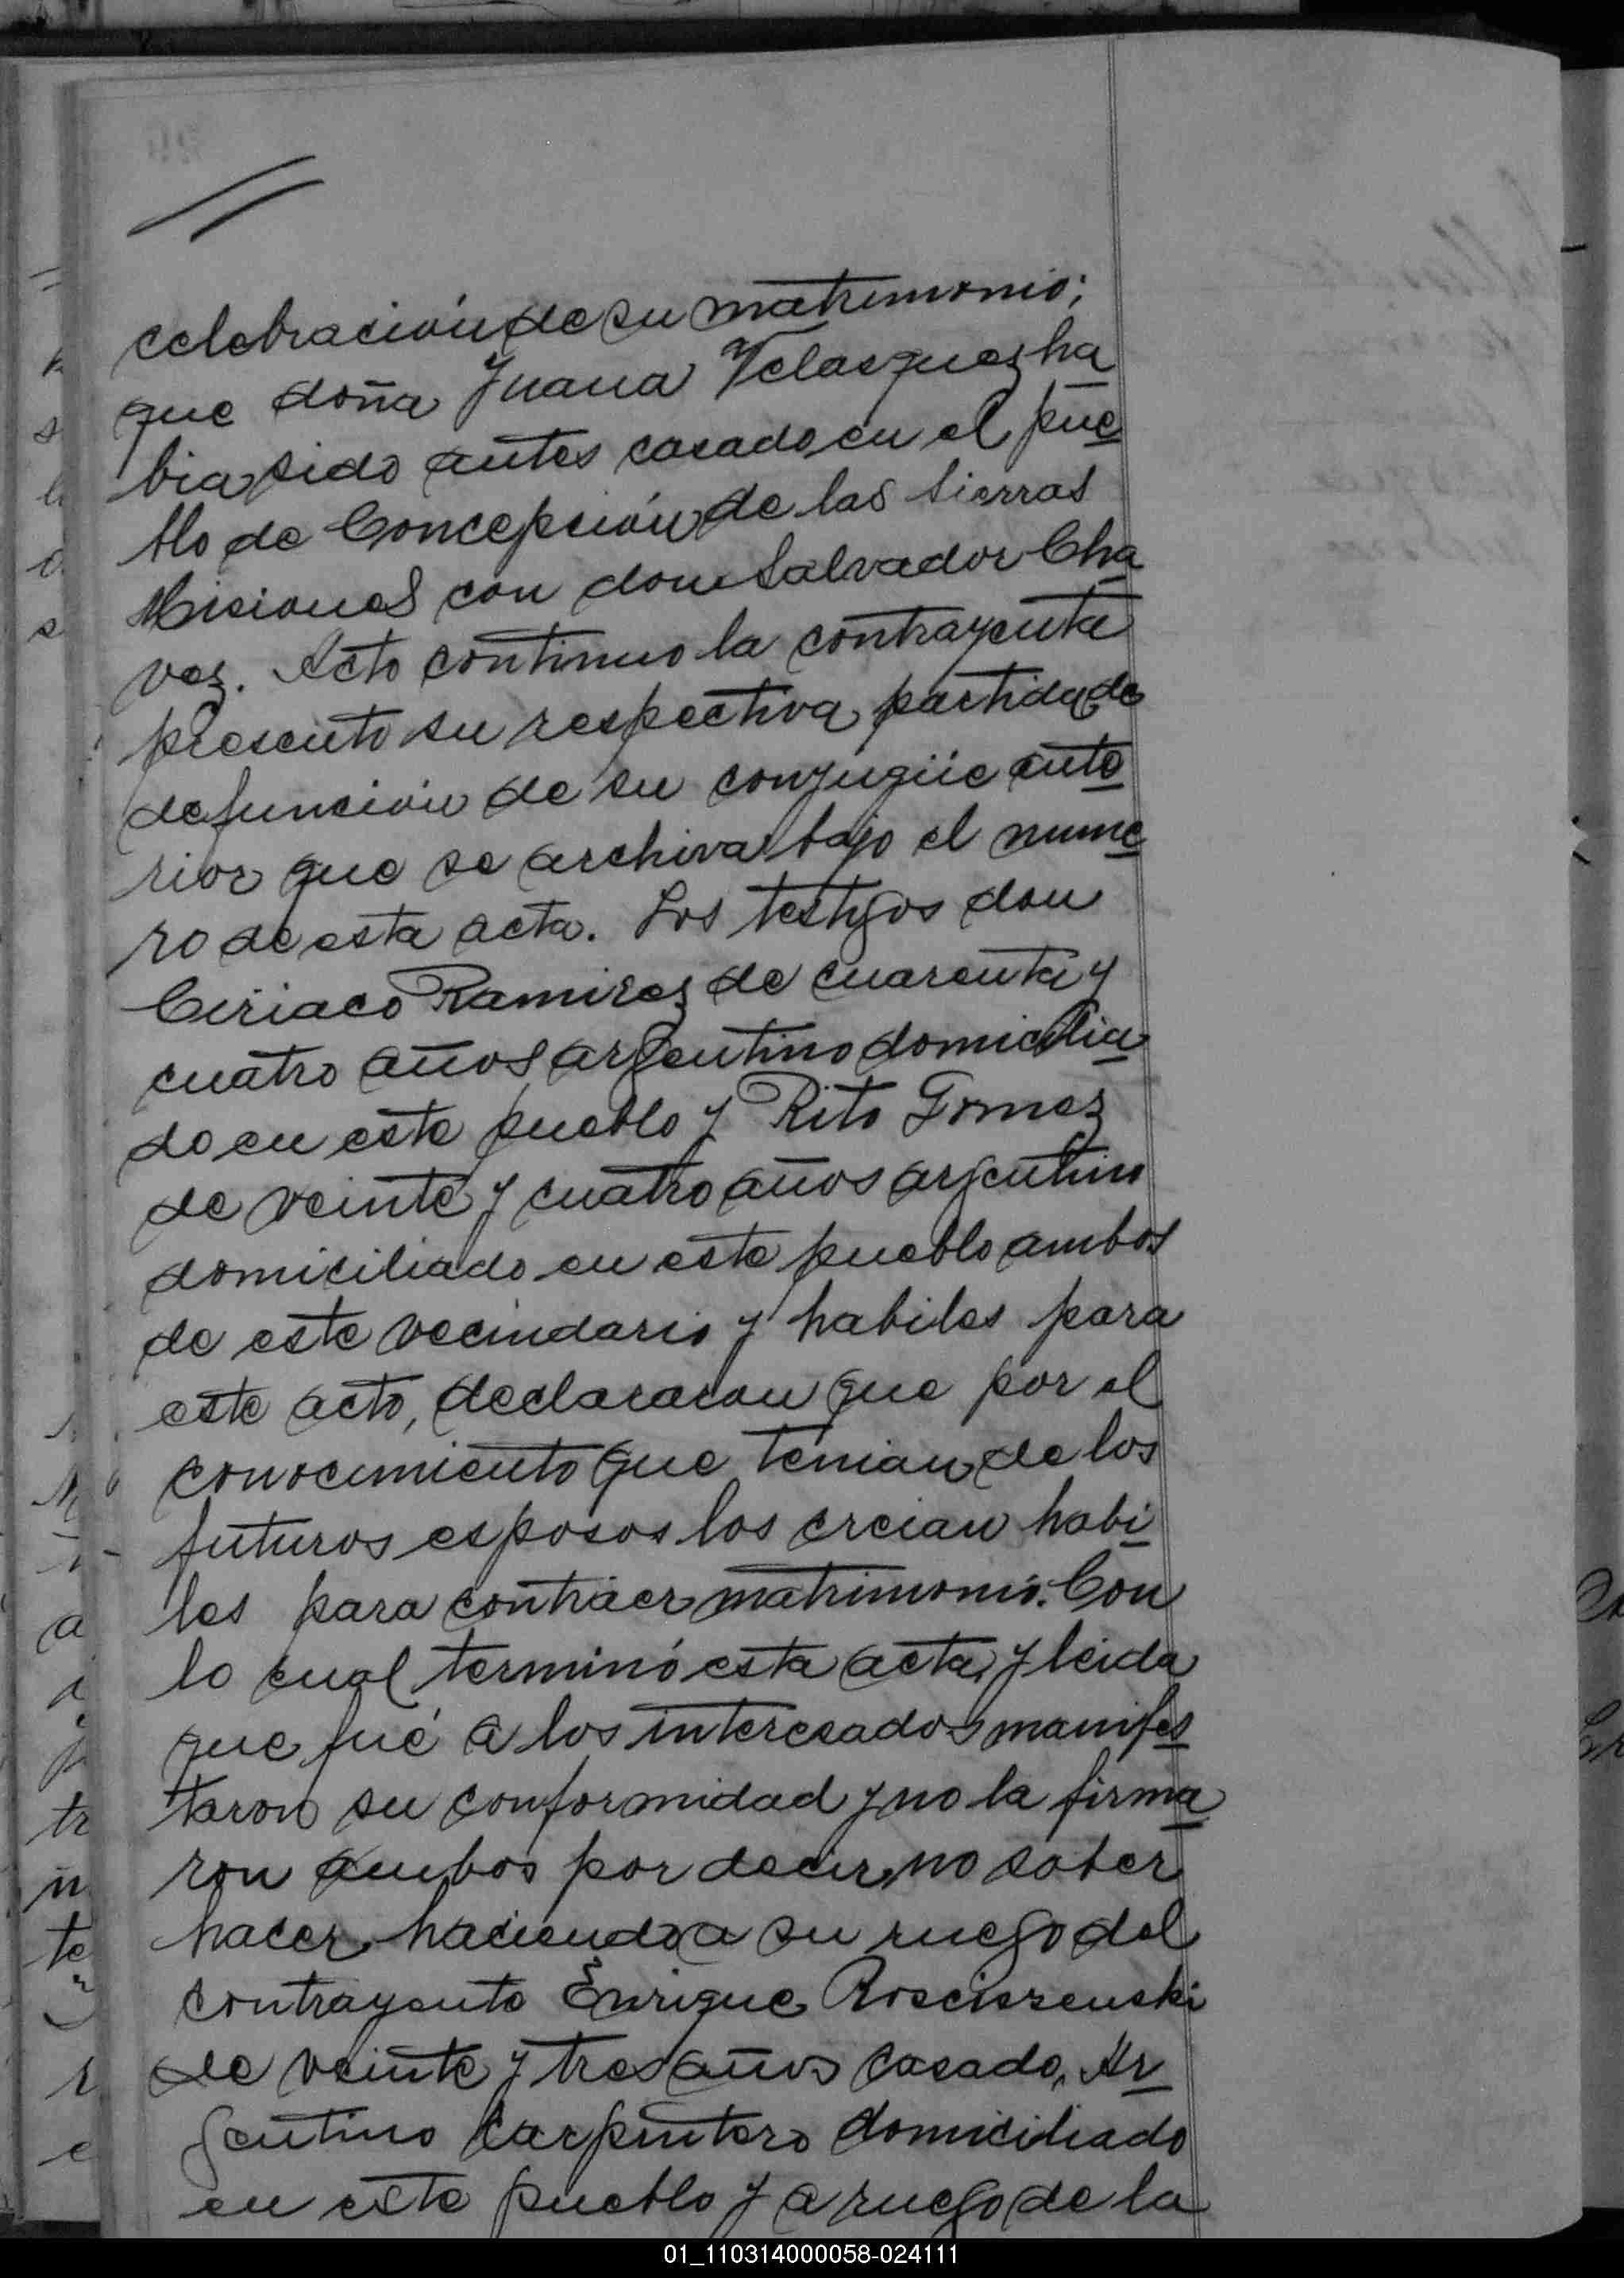 celebración de su matrimonio;
que doña Juana Velasquez ha
bia sido antes casado en el pue
blo de Concepción de las Sierras
Misiones con don Salvador Cha
vez. Acto continuo la contrayente
presento su respectiva partida de
defunción de su conjugüe ante
rior que se archiva bajo el nume
ro de esta acta. Los testigos don
Ciriaco Ramirez de cuarenta y
cuatro años argentino domicilia
do en este pueblo y Rito Gomez
de veinte y cuatro años argentino
domiciliado en este pueblo ambos
de este vecindario y habiles para
este acto, declararon que por el
conocimiento que tenian de los
futuros esposos los creian habi
les para contraer matrimonio. Con
lo cual terminó esta acta, y leida
que fué a los interesados manifes
taron su conformidad y no la firma
ron ambos por decir no saber
hacer haciendo a su ruego del
contrayente Enrique Rosciszenski
de veinte y tres años casado, Ar
gentino carpintero domiciliado
en este pueblo y a ruego de la
01_110314000058-024111